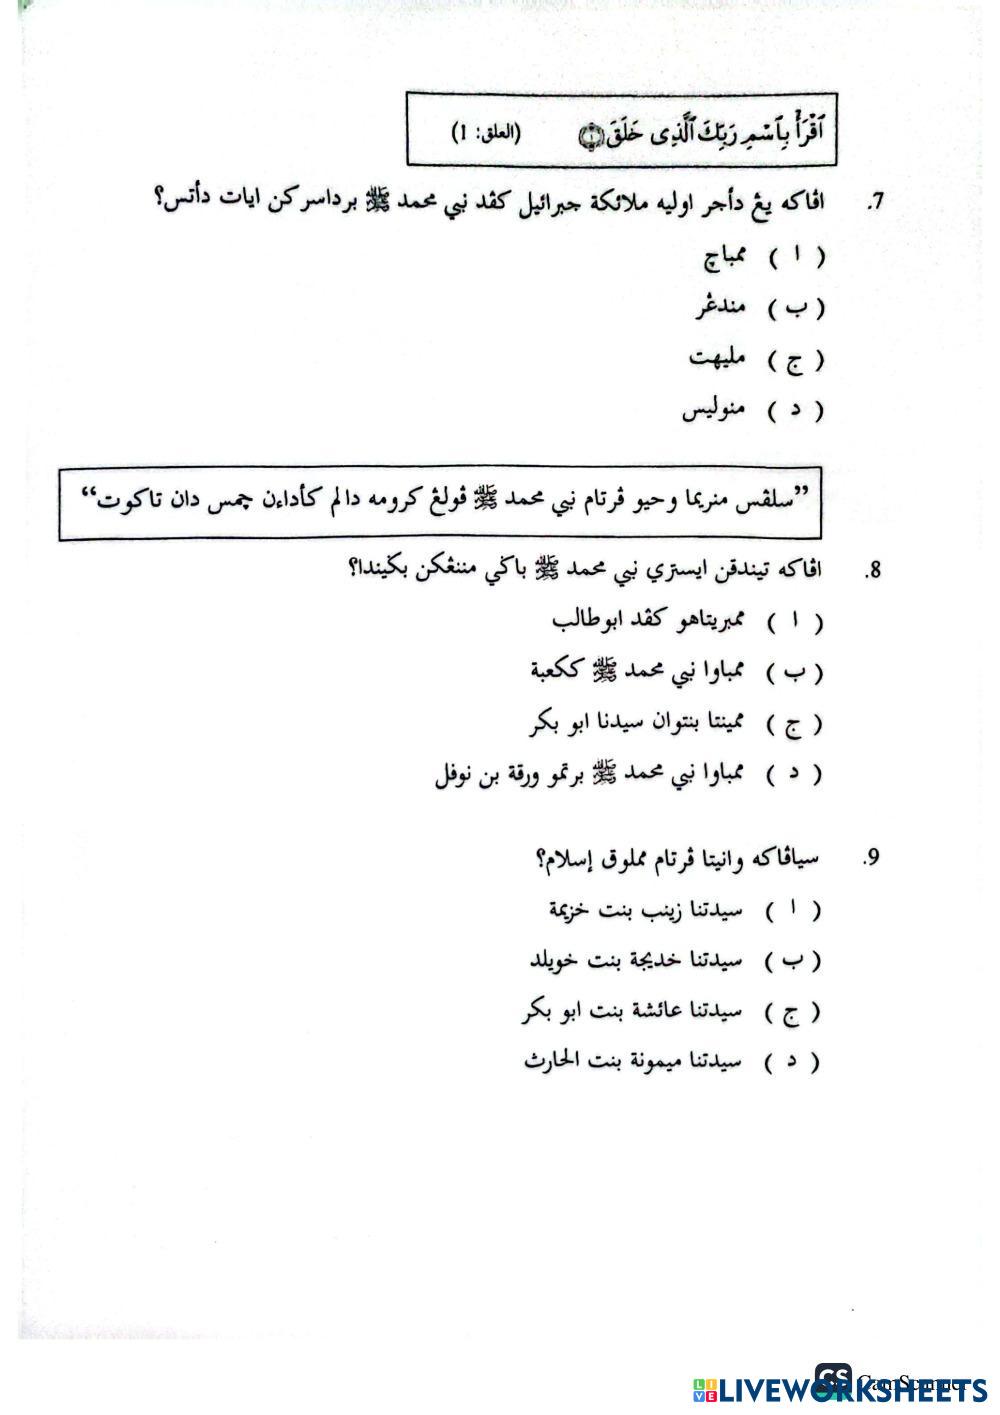 ٱقْرَأْ بِٱسْمِ رَبِّكَ ٱلَّذِى خَلَقَ ۝١ (العلق: 1)
7. اڤاكه يڠ دأجر اوليه ملائكة جبرائيل كڤد نبي محمد ﷺ برداسركن ايات دأتس؟
( ا ) ممباچ
( ب ) مندڠر
( ج ) مليهت
( د ) منوليس
”سلڤس منريما وحيو ڤرتام نبي محمد ﷺ ڤولڠ كرومه دالم كأداءن چمس دان تاكوت“
8. اڤاكه تيندقن ايستري نبي محمد ﷺ باݢي مننڠكن بݢيندا؟
( ا ) ممبريتاهو كڤد ابو طالب
( ب ) ممباوا نبي محمد ﷺ ككعبة
( ج ) ممينتا بنتوان سيدنا ابو بكر
( د ) ممباوا نبي محمد ﷺ برتمو ورقة بن نوفل
9. سياڤاكه وانيتا ڤرتام مملوق إسلام؟
( ا ) سيدتنا زينب بنت خزيمة
( ب ) سيدتنا خديجة بنت خويلد
( ج ) سيدتنا عائشة بنت ابو بكر
( د ) سيدتنا ميمونة بنت الحارث
CS CamScanner
LIVEWORKSHEETS